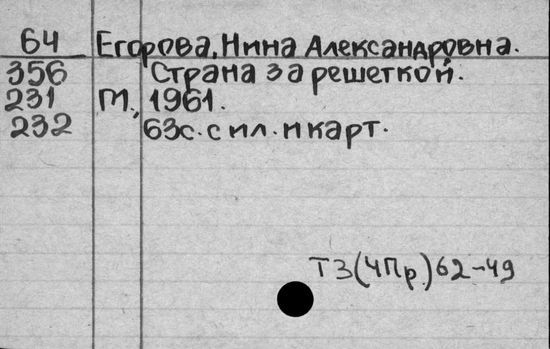 64 Егорова, Нина Александровна.
356 Страна за решеткой.
231 М., 1961.
232 63с. с ил. и карт.
ТЗ(4Пр)62-49